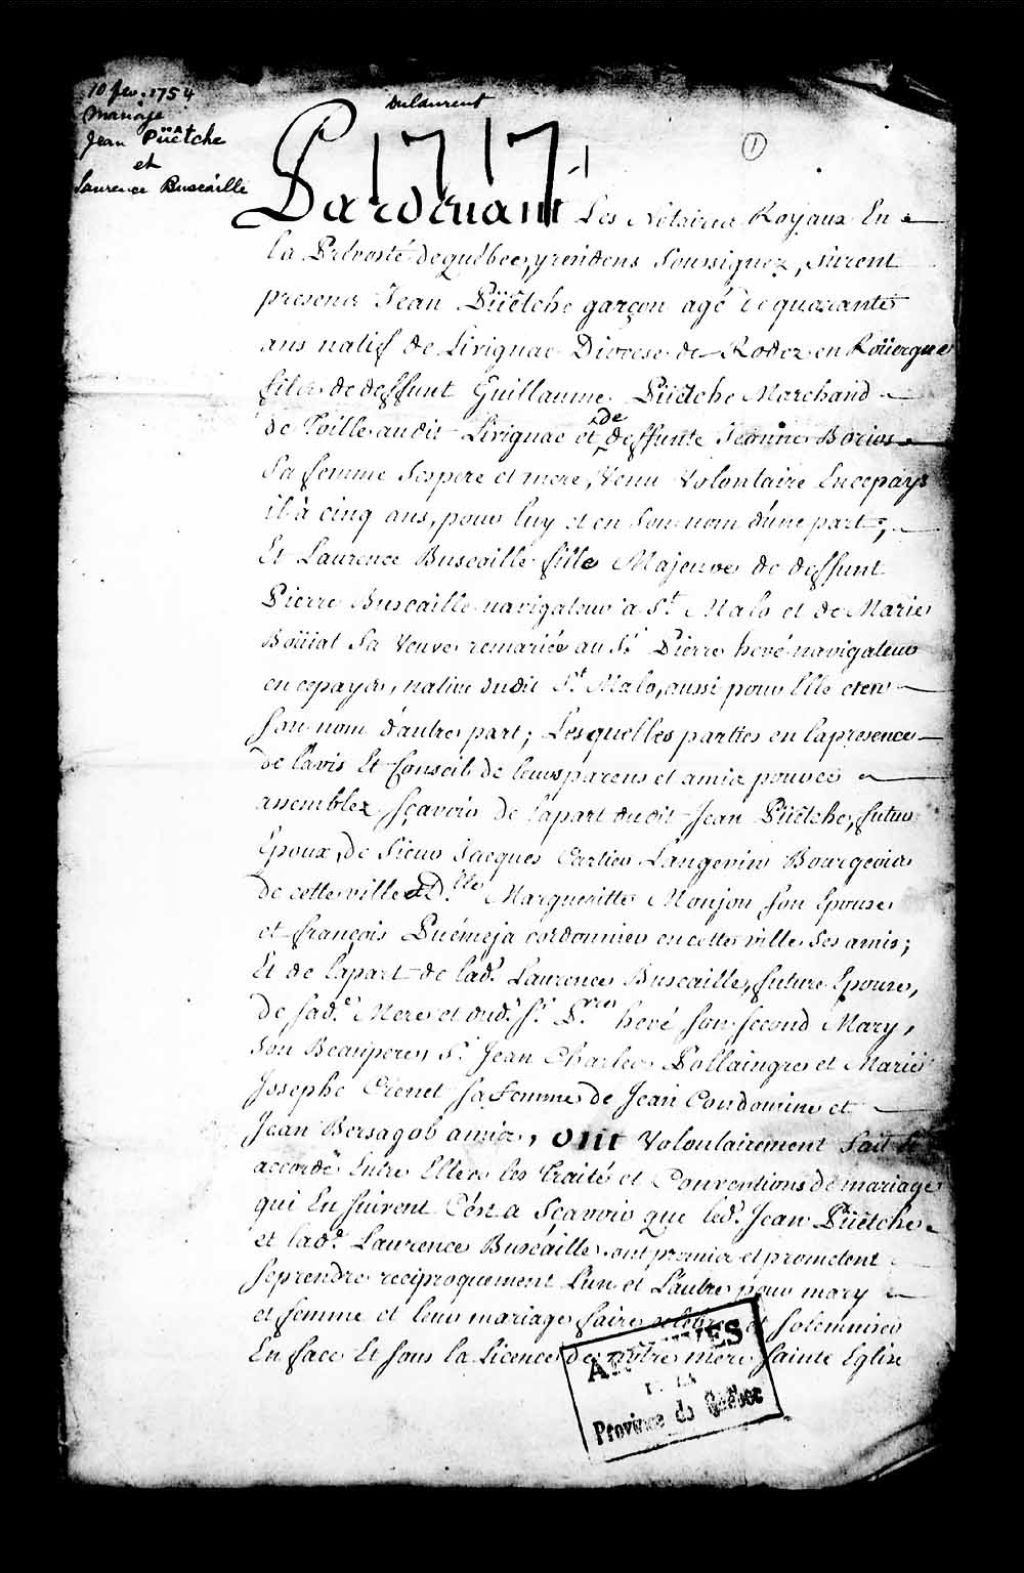 10 fev. 1754
Mariage
Jean Püètche
et
Laurence Buscaille
Dulaurent
1717
1
Pardevant Les Notaires Royaux En
la Prévosté de québec, y residens Soussignez, furent
presens Jean Püètche garçon agé de quarante
ans natif de Livignac Diocese de Rodez en Roüergue
fils de deffunt Guillaume Püètche Marchand
de Toille audit Livignac et de deffunte Jeanne Bories
Sa femme Ses pere et mere, Venu Volontaire En ce pays
il à cinq ans, pour luy et en Son nom d'une part;
Et Laurence Buscaille fille Majeure de deffunt
Pierre Buscaille navigateur a St. Malo et de Marie
Boüiat Sa Veuve remariée au Sr. Pierre hevé navigateur
en ce pays, native dudit St. Malo, aussi pour Elle et en
Son nom d'autre part; Lesquelles parties en la presence
de l'avis Et Conseil de leurs parens et amis pour ce
assemblez, sçavoir de la part dudit Jean Püètche, futur
Epoux, de Sieur Jacques Cartier Langevin Bourgeois
de cette ville et D.lle Margueritte Monjon Son Epouse
et françois Puémeja cordonnier en cette ville Ses amis;
Et de la part de lad.e Laurence Buscaille, future Epouse,
de Sad.e Mere et dud. Sr. P.rre hevé Son Second Mary,
Son Beaupere, Sr. Jean Charles Pollaingre et Marie
Josephe Crenet Sa femme de Jean Condomine et
Jean Bersagob amis, Ont Volontairement fait et
accordé Entre Elles les Traité et Conventions de mariage
qui En Suivent C'est a Sçavoir que led. Jean Püètche
et lad.e Laurence Buscaille ont promis et prometent
Se prendre reciproquement L'un et L'autre pour mary
et femme et leur mariage faire celebrer et Solemniser
En face Et Sous la Licence de nôtre mere Sainte Eglise
ARCHIVES
DE LA
Province de Québec